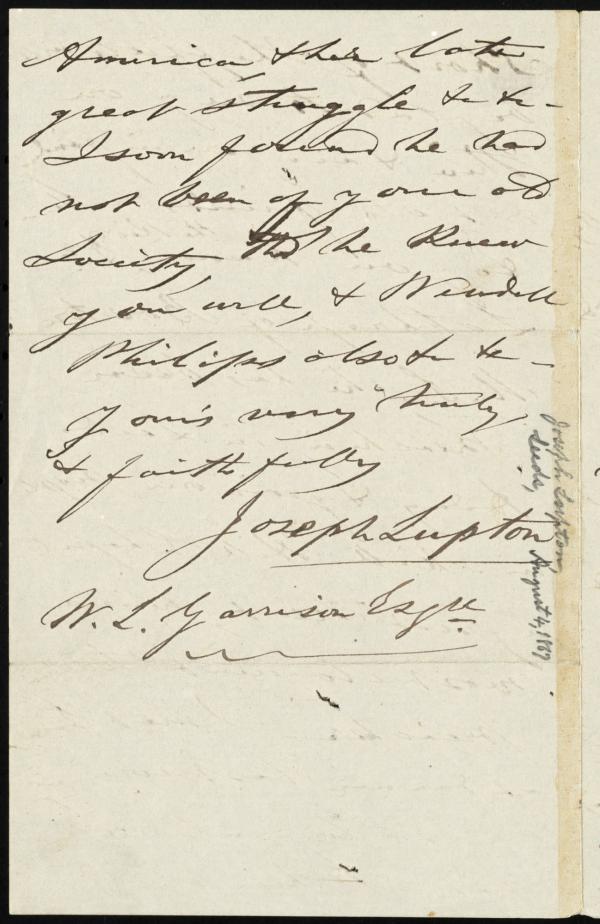 America, & their late
great struggle &c &c -
I soon found he had
not been of your old
Society, tho' he knew
you well, & Wendell
Philips also &c &c -
Yours very truly
& faithfully
Joseph Lupton
W. L. Garrison Esqre
Joseph Lupton
Leeds, August 4, 1867.